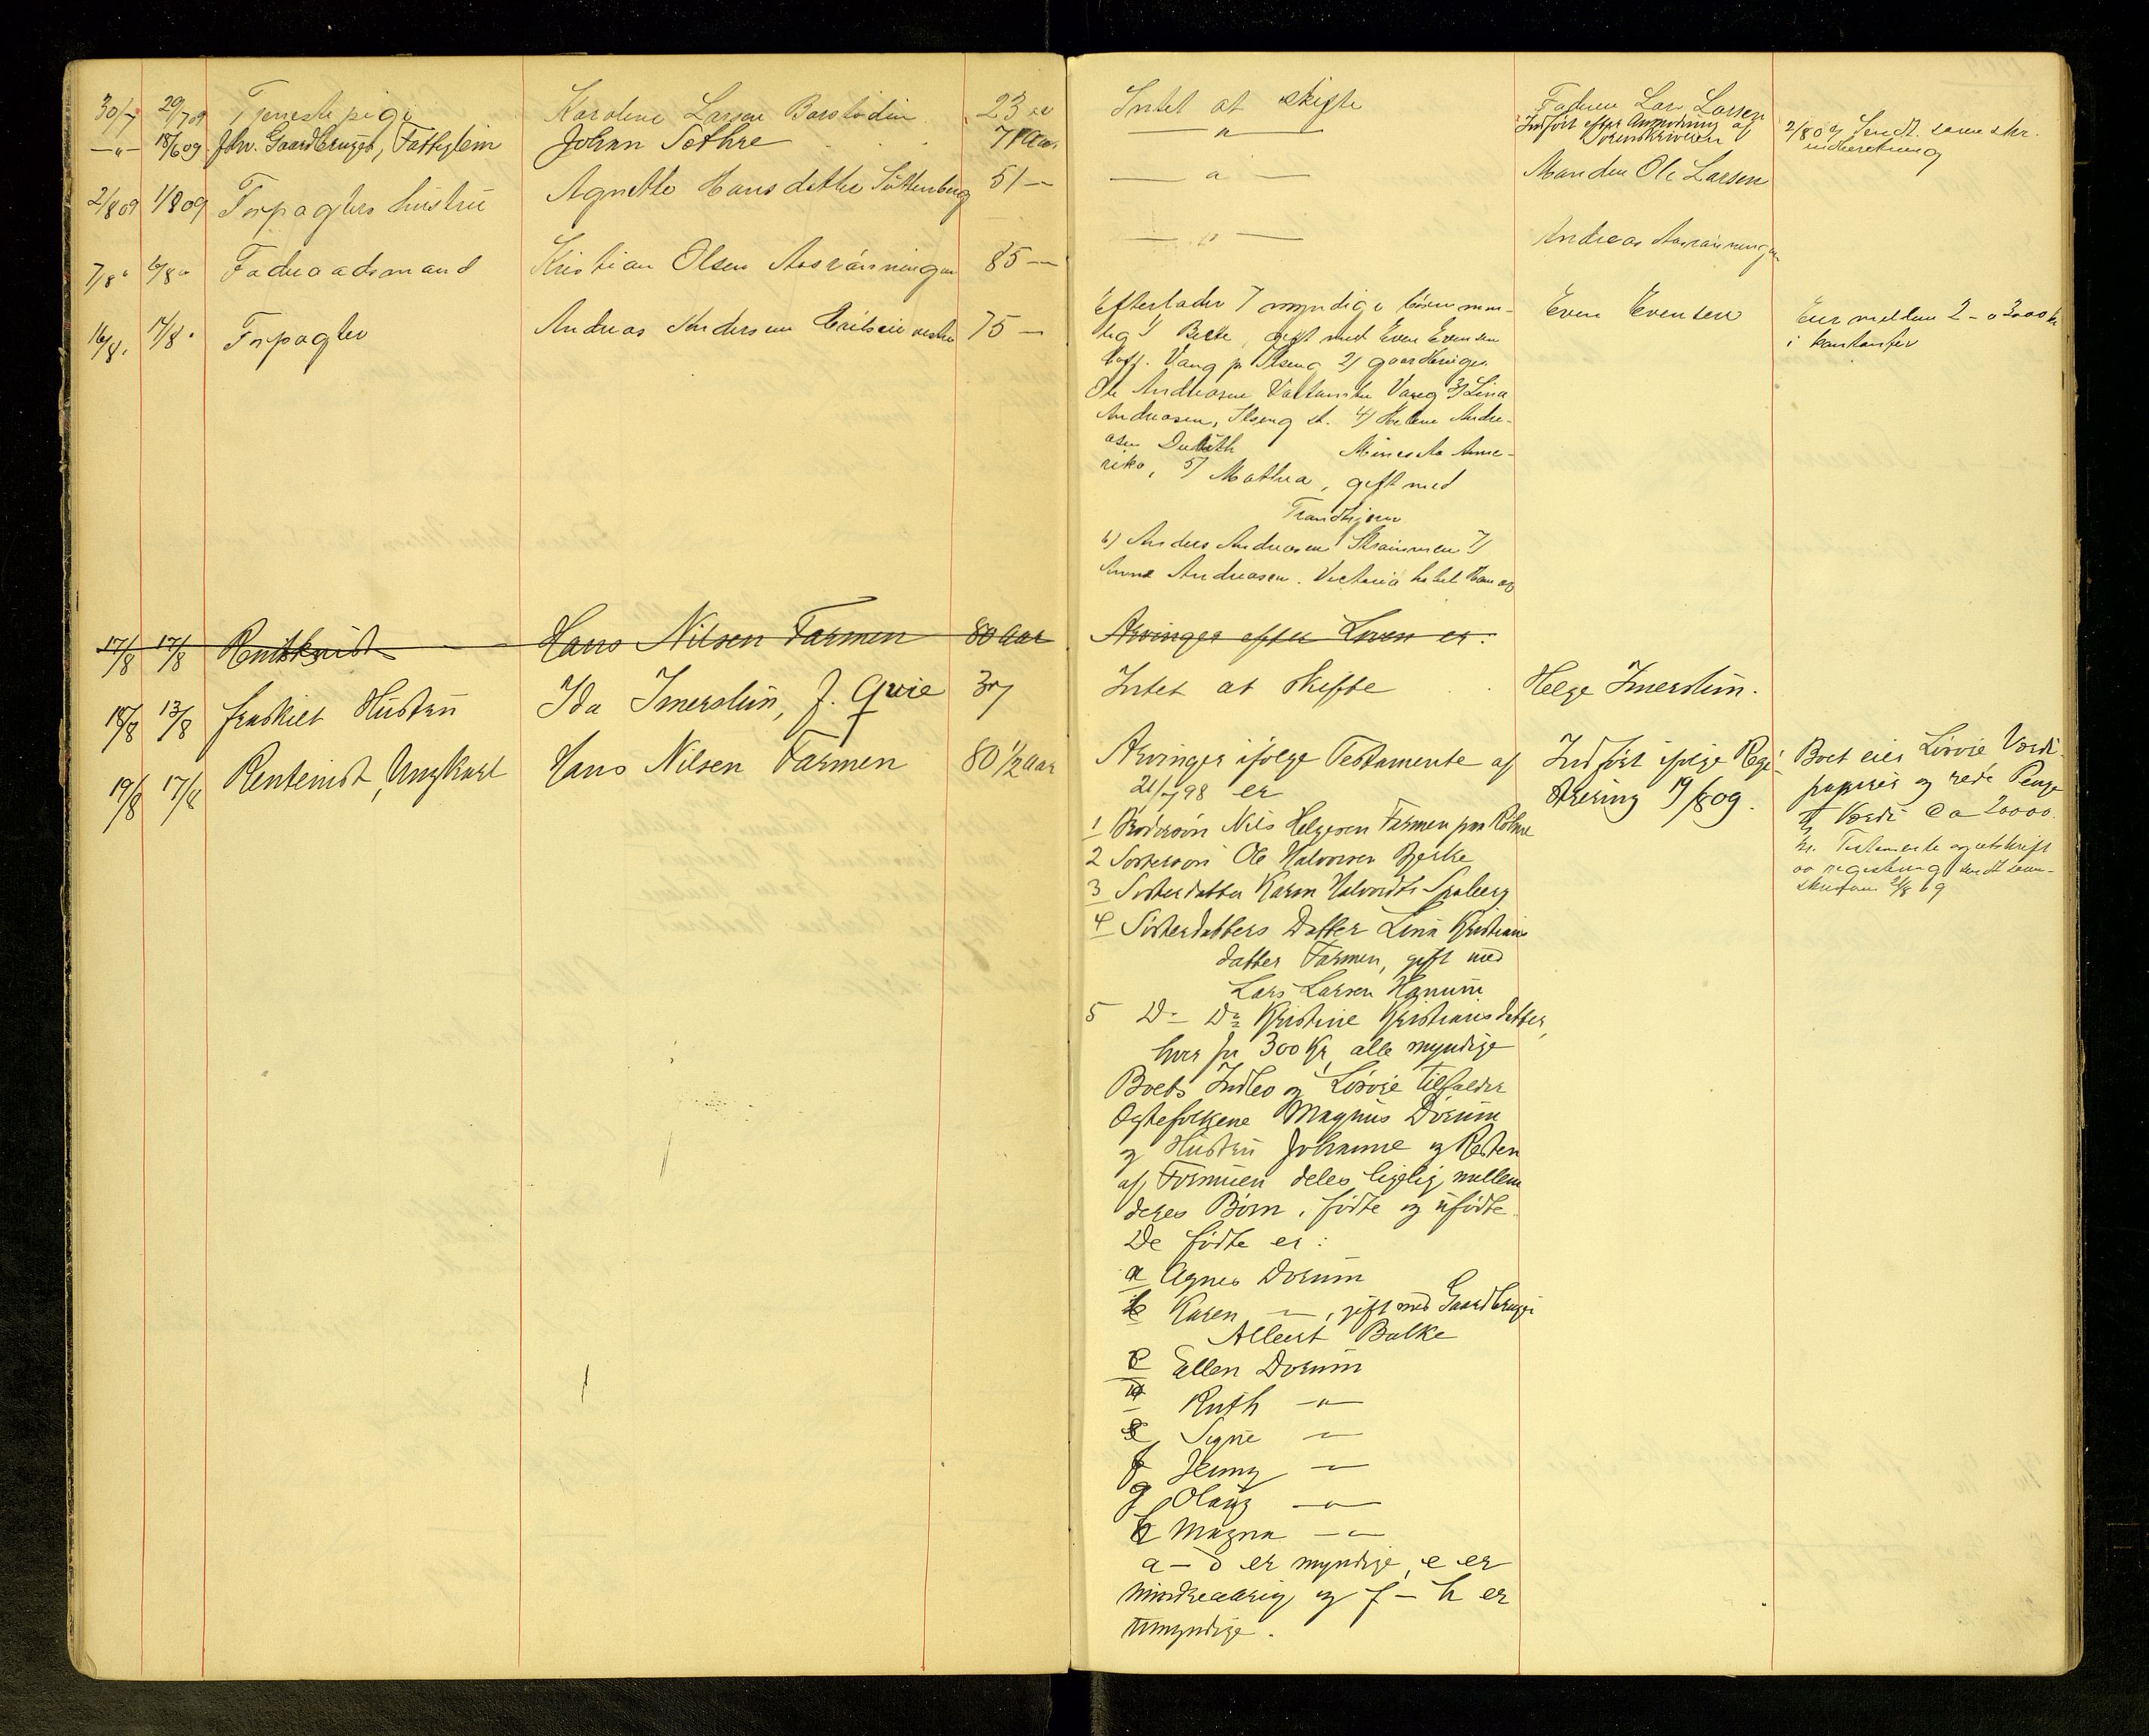 30/7 29/7 09 Tjenestepige Karoline Larsen 23 aar Intet at skifte Faderen Lars Larsen
—"— 18/6 09 fhv. Gaardbruger, Fattiglem Johan Sothre 71 aar —"— Indført efter Anmodning af Sorenskriveren 2/8 09 Sendt sorenskr. indberetning
2/8 09 1/8 09 Forpagters hustru Agnethe Hansdatter 51 — —"— Manden Ole Larsen
7/8 " 6/8 " Føderaadsmand Kristian Olsen Aasrønningen 85 — —"— Andreas Aasrønningen
16/8 " 14/8 " Forpagter Andreas Andersen vestre 75 — Efterlader 7 myndige børn nem- Even Evensen Eier mellem 2 - a 3000 kr
lig 1) Berte, gift med Even Evensen i kontanter
Vang pr Ilseng 2) gaardbruger
Ole Andreasen Vang 3) Lina
Andreasen, Ilseng st. 4) Helene Andre-
asen Duluth Minesota Ame-
rika, 5) Mathea, gift med
Trondhjem
6) Anders Andreasen Strømmen 7)
Anna Andreasen. Victoria hotel Hamar
17/8 17/8 Hans Nilsen Farmen 80 aar Arvinger efter Loven er:
18/8 13/8 fraskilt Hustru Ida Imerslun, f. Qvie 37 Intet at skifte Helge Imerslun.
19/8 17/8 Rentenist, Ungkarl Hans Nilsen Farmen 80 1/2 aar Arvinger ifølge Testamente af Indført ifølge Regi- Boet eier Løsøre Værdi-
21/7 98 er strering 19/8 09. papirer og rede Penge
1 Brodersøn Nils Helgesen Farmen paa til Værdi Ca 20000
2 Søstersøn Ole Halvorsen Bjerke kr. Testamente og utskrift
3 Søsterdatter Karen Halvordtr av registrering sendt soren-
4 Søsterdatters Datter Lina Kristians skriveren 21/8 09
datter Farmen, gift med
Lars Larsen Hanum
5 Do Do Kristine Kristiansdatter,
hver faar 300 Kr, alle myndige
Boets Indbo og Løsøre tilfalder
Egtefolkene Magnus Dorum
og Hustru Johanne og Resten
af Formuen deles ligelig mellem
deres Børn, fødte og ufødte.
De fødte er:
a Agnes Dorum
b Karen —"—, gift med Gaardbruger
Albert Balke
c Ellen Dorum
d Ruth —"—
e Signe —"—
f Jenny —"—
g Olaug —"—
h Magna —"—
a – d er myndige, e er
mindreaarig og f – h er
umyndige.